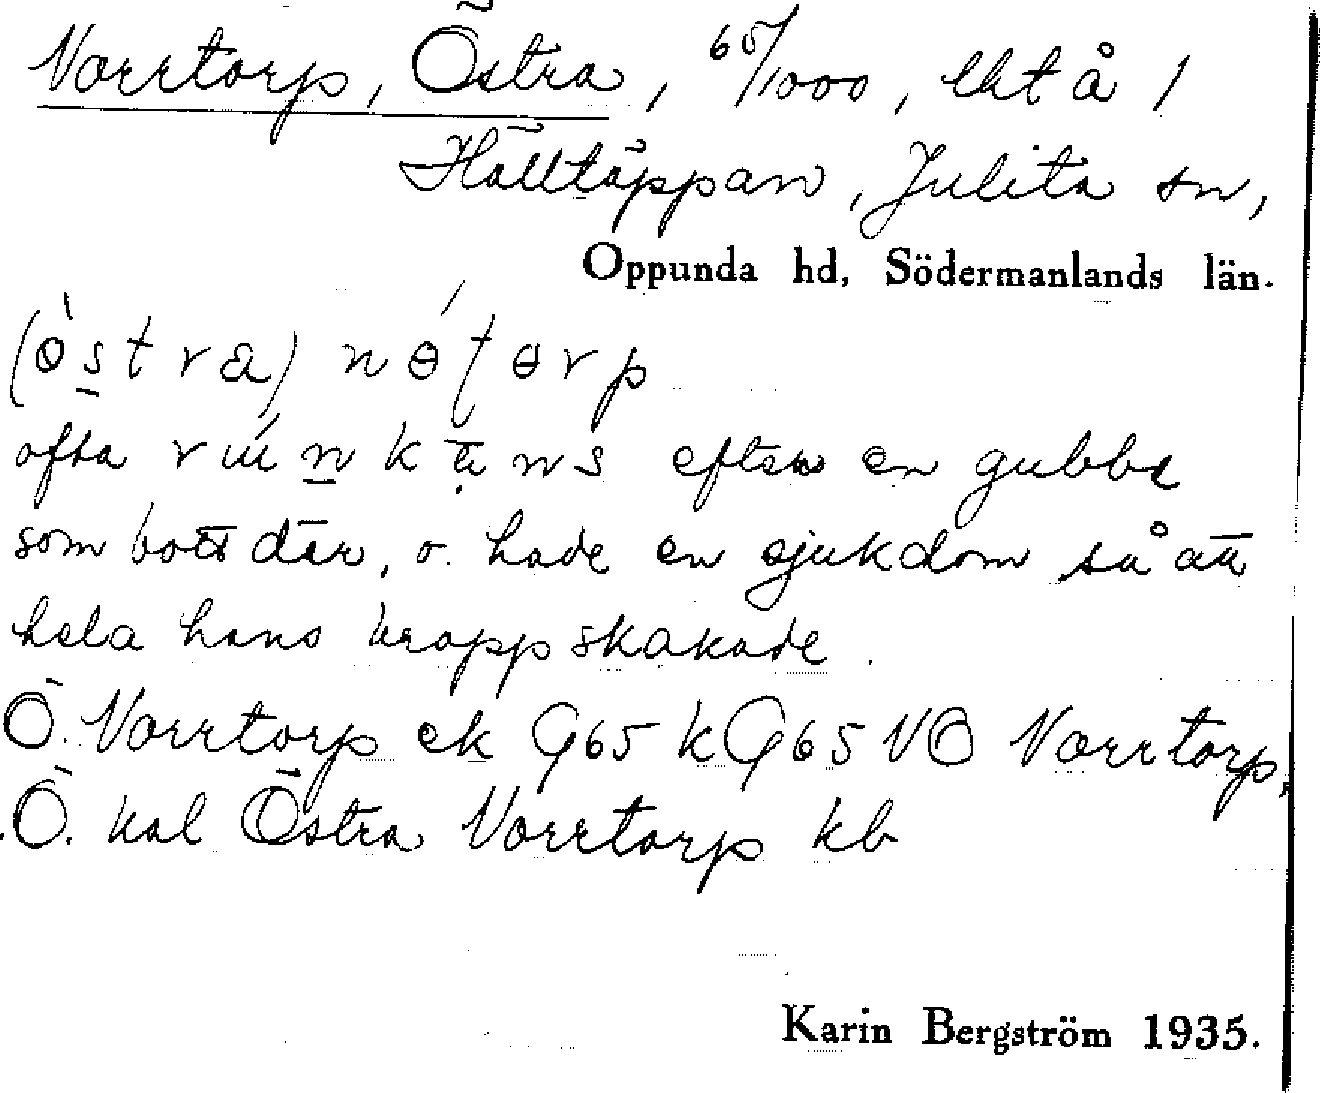 Norrtorp, Östra, 65/1000, lht å 1
Hälltäppan, Julita sn,
Oppunda hd, Södermanlands län.
(östra) nɵ́tɵrp
ofta
efter en gubbe
som bott där, o. hade en sjukdom så att
hela hans kropp skakade.
Ö. Norrtorp ek G65 kG65NO Norrtorp,
Ö. hal Östra Norrtorp kb
Karin Bergström 1935.